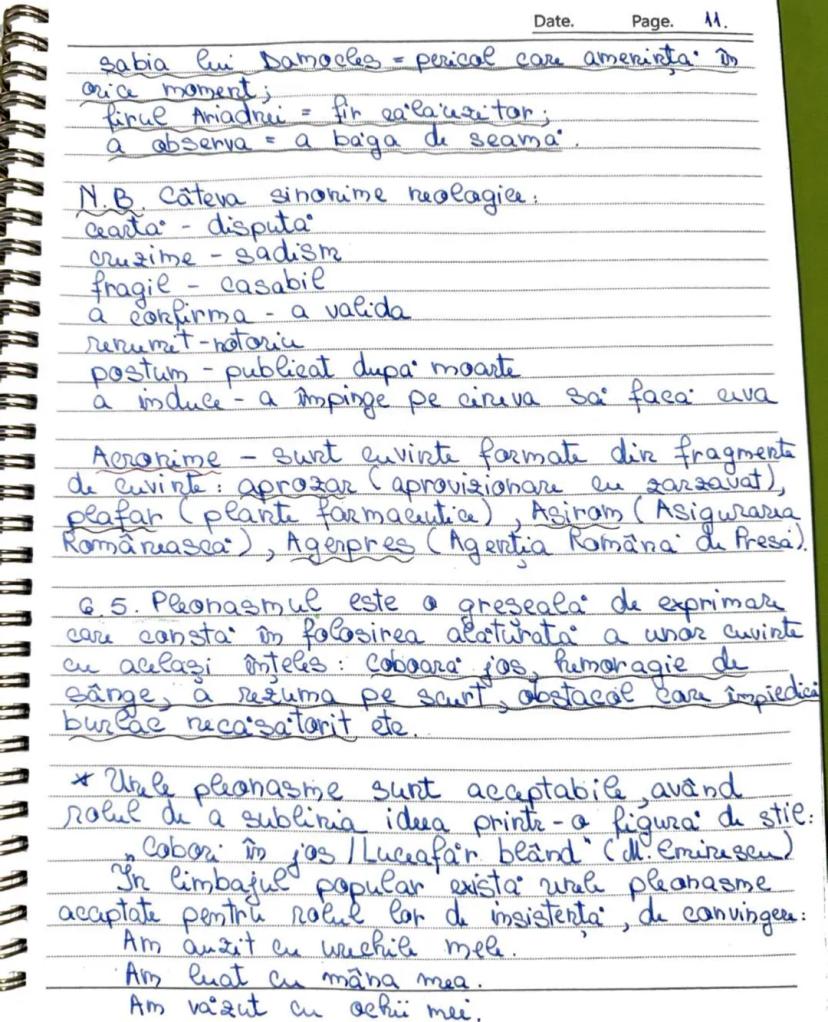 Date. Page. 11.
sabia lui Damocles = pericol care amenință în
orice moment;
firul Ariadnei = fir călăuzitor;
a observa = a băga de seamă.
N.B. Câteva sinonime neologice:
ceartă - dispută
cruzime - sadism
fragil - casabil
a confirma - a valida
renumit - notoriu
postum - publicat după moarte
a induce - a împinge pe cineva să facă ceva
Acronime - sunt cuvinte formate din fragmente
de cuvinte: aprozar (aprovizionare cu zarzavat),
plafar (plante farmaceutice), Asirom (Asigurarea
Românească), Agerpres (Agenția Română de Presă).
6.5. Pleonasmul este o greșeală de exprimare
care constă în folosirea alăturată a unor cuvinte
cu același înțeles: coboară jos, hemoragie de
sânge, a rezuma pe scurt, obstacol care împiedică
burlac necăsătorit etc.
* Unele pleonasme sunt acceptabile, având
rolul de a sublinia ideea printr-o figură de stil:
„Cobori în jos / Luceafăr blând" (M. Eminescu)
In limbajul popular există unele pleonasme
acceptate pentru rolul lor de insistență, de convingere:
Am auzit cu urechile mele.
Am luat cu mâna mea.
Am văzut cu ochii mei.